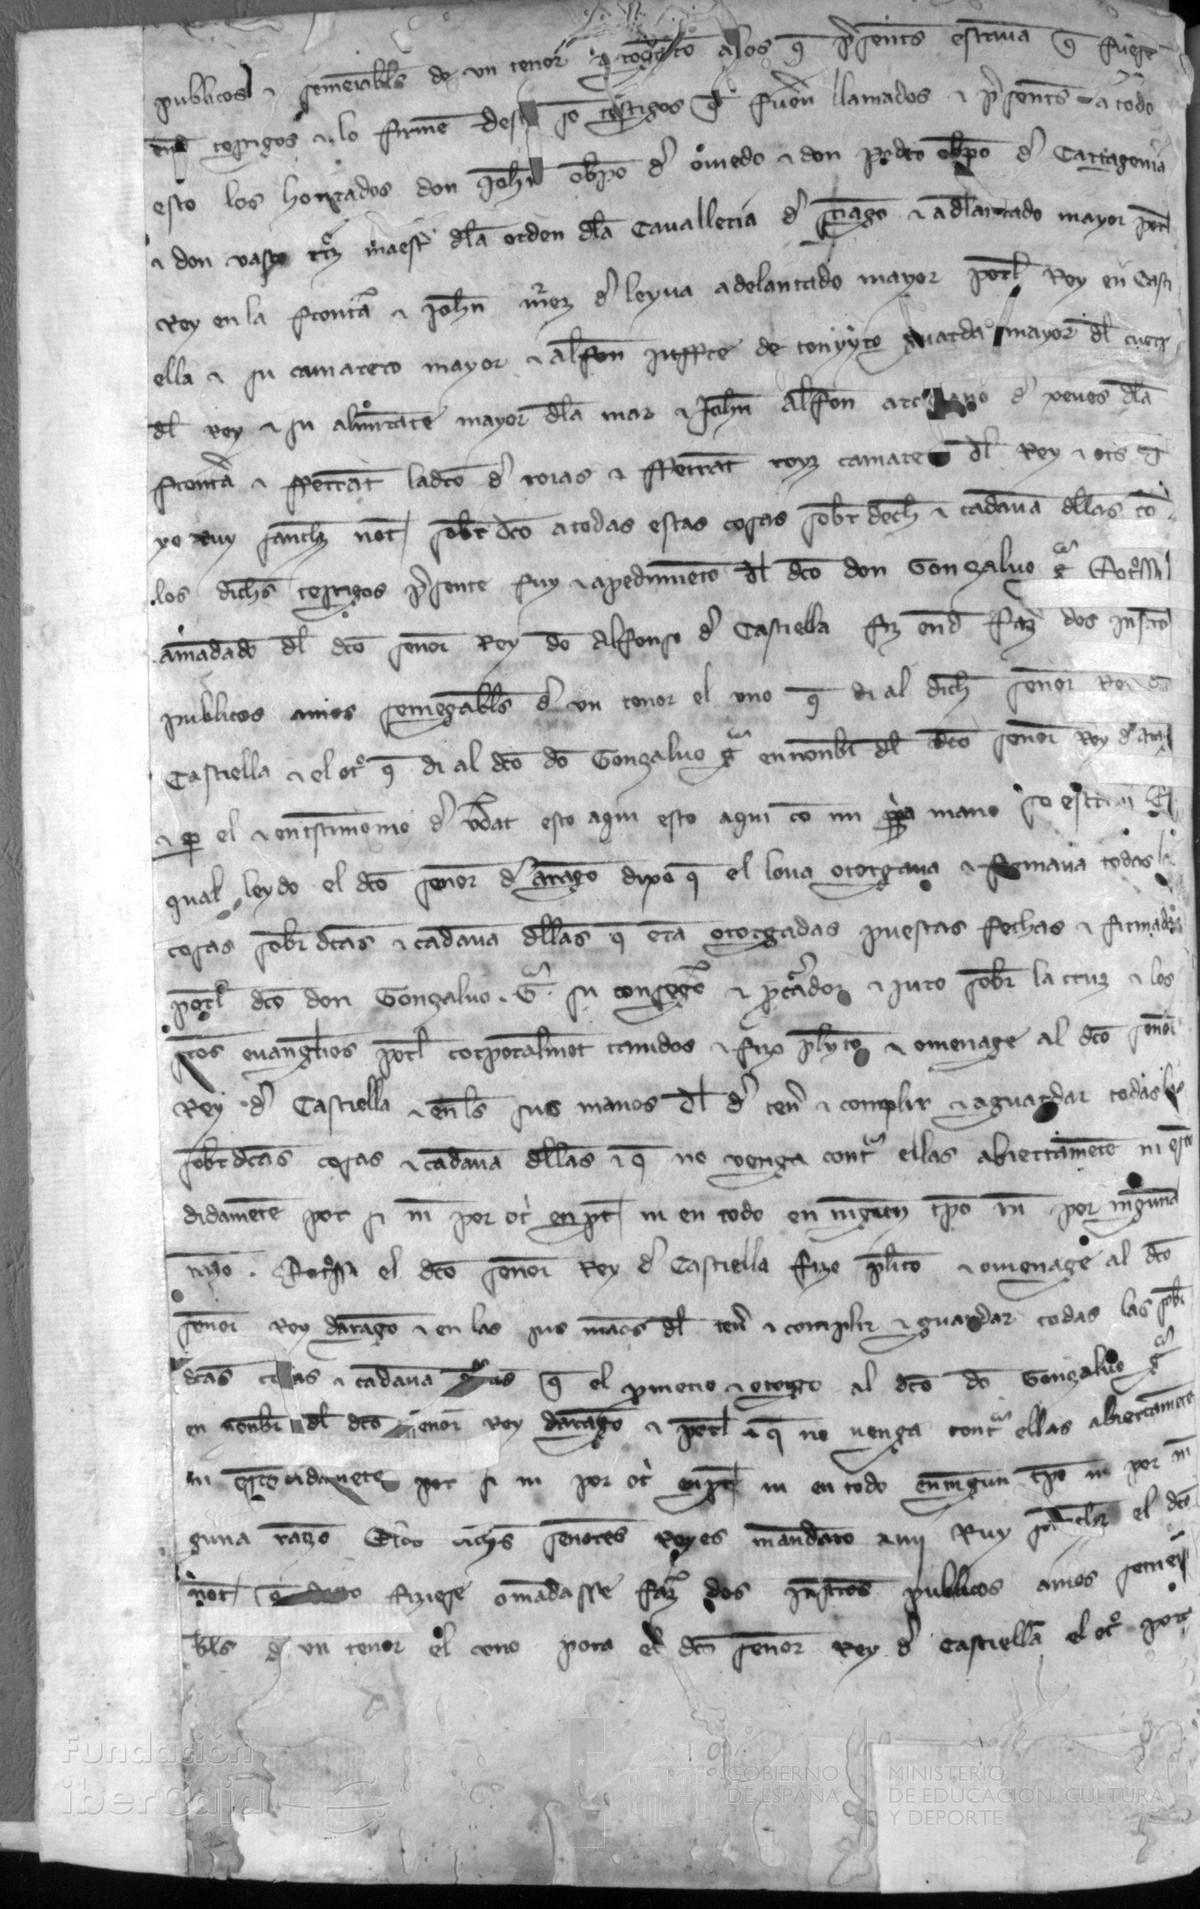 publicos & semeiables de un tenor & rogaron alos q̄ p̃sentes estauan q̄ fuesẽ
end testigos & lo firme desto so testigos q̄ fueron llamados & p̃sentes a todo
esto los honrados don Johñ obpo d̃ ouiedo & don Pedro obpo d̃ Cartagenia
& don vasco rrz maestr̃ dla orden dla Caualleria d̃ Sciago & adlantado mayor porl
Rey en la frontã & Johñ mrez d̃ leyua adelantado mayor porl Rey en Casti
ella & su camarero mayor & alfon juffre de tonyyro guarda mayor dl cuerp
dl Rey & su almirante mayor dla mar & Johñ alfon d̃ xeues dla
frontã & fferrãt ladrõ d̃ roias & fferrãt royz camare dl Rey & ots q̄
yo Ruy sanchz not sobr dco a todas estas cosas sobr dech & cadauna dllas cõ
los dichs testigos p̃sente fuy & a pedimieto dl dco don Gonzaluo gᵃ Et otrossi
amadado dl dco senor Rey do Alfonso d̃ Castiella fiz end fazr dos instros
publicos amos semeiabls d̃ un tenor el uno q̄ di al dich senor Rey d̃
Castiella & el otº q̄ di al dco do Gonzaluo gᵃ en nonbr dl dco senor Rey d̃ arag
& por el & en testimonio d̃ vdat esto aqui esto aqui cõ mi ppa mano so escriui El
qual leydo el dco senor d̃ arago dixo q̄ el loua otorgaua & firmaua todas la
cosas sobr dcas & cadauna dllas q̄ era otorgadas puestas fechas & firmadas
porl dco don Gonzaluo. Gᵃ. su consegero & p̃curador & juro sobr la cruz & los
scos euanglios porl corporalmet tanidos & fizo plyto & omenage al dco senor
Rey d̃ Castiella & enls sus manos dl d̃ tenr & complir & aguardar todas las
sobrdcas cosas & cadauna dllas & q̄ no venga contᵃ ellas abiertamete ni esco
didamete por si ni por otº en pt ni en todo en ningun tpo ni por ninguna
razo. Et otrossi el dco senor Rey d̃ Castiella fizo plito & omenage al dco
senor Rey darago & en las sus maos dl tenr & complir & guardar todas las sobr
dcas cosas & cadauna q̄ el prometio & otorgo al dco do Gonzaluo gᵃ
en nonbr dl dco senor Rey darago & porl & q̄ no venga contᵃ ellas abiertamete
ni escodidamete por si ni por otº en pt ni en todo en ningun tpo ni por nin
guna razo Et los dichs senores Reyes mandaro a mi Ruy sanchz el dco
not q̄ fiziese o madasse fazr dos instros publicos amos semeia
bls d̃ un tenor el uno pora el dco senor Rey d̃ Castiella el otº pora
Fundación
iberCaja
GOBIERNO
DE ESPAÑA
MINISTERIO
DE EDUCACIÓN, CULTURA
Y DEPORTE